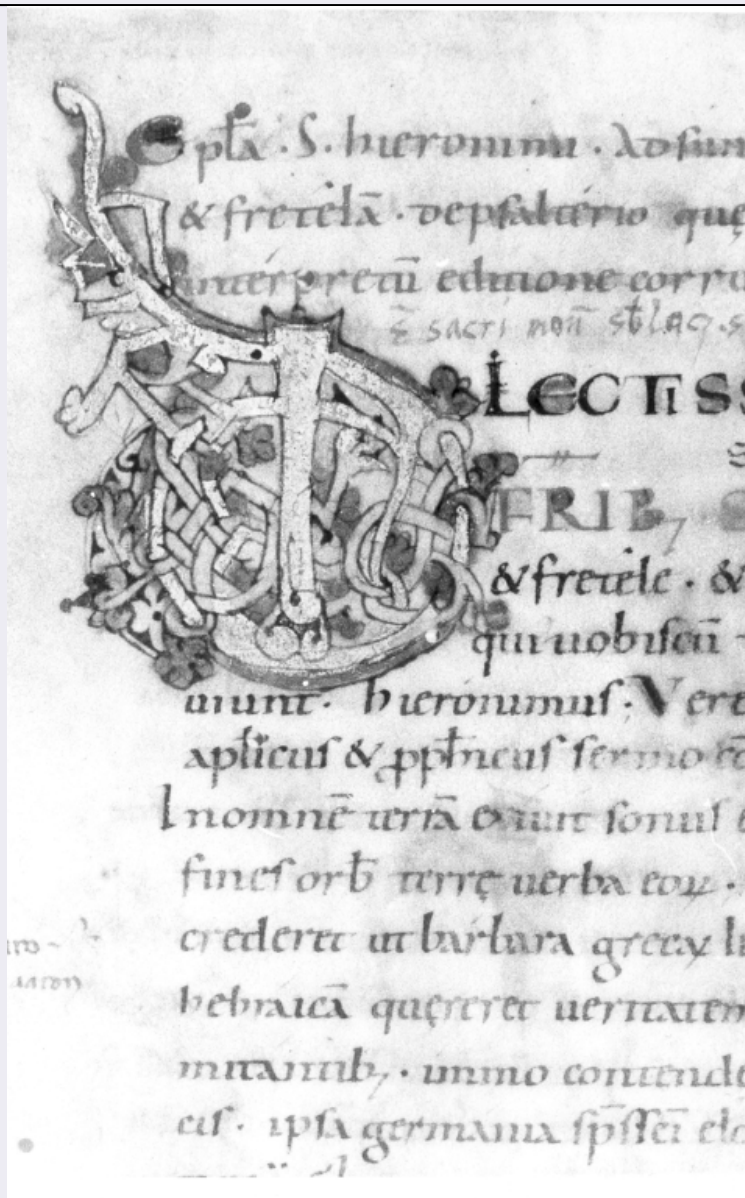 Epl̄a · S · hieronimi · ad sun
& fretelā · de psalterio quę
interpretū editione corru
sacri
D
ILECTISS
FRIB;
& fretele · &
qui uobiscū
uiunt · hieronimus · Vere
apl̄icus & ꝓph̄ncus sermo
In omnē terrā exiuit sonus
fines orb̄ terrę uerba eoꝝ ·
crederet ut barbara grecę li
hebraicā quęreret ueritatem
mitantib; · immo contende
cis · ipsa germania sp̄s sc̄i elo